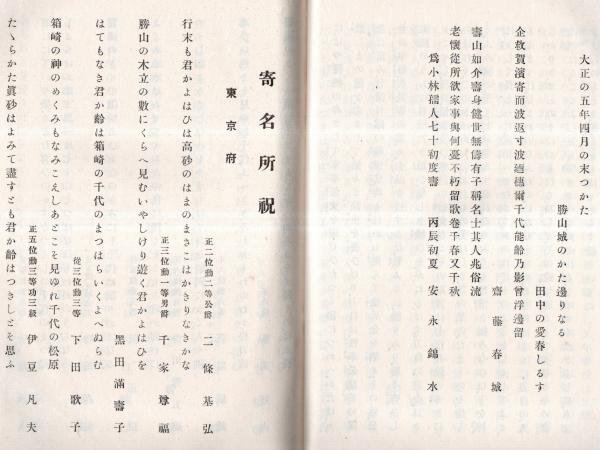 大正の五年四月の末つかた
勝山城のかた邊りなる
田中の愛春しるす
企救賀濱寄而波返寸波廼穗爾千代能齡乃影曾浮邊留
齋藤春城
壽山如介壽身健世無儔有子稱名士其人兆俗流
老懷從所欲家事與何憂不朽留歌卷千春又千秋
爲小林孺人七十初度壽 丙辰初夏 安永錦水
寄名所祝
東京府
正二位勳二等公爵 二條基弘
行末も君かよはひは高砂のはまのまさこはかきりなきかな
正三位勳一等男爵 千家尊福
勝山の木立の數にくらへ見むいやしけり遊く君かよはひを
黑田滿壽子
はてもなき君か齡は箱崎の千代のまつはらいくよへぬらむ
從三位勳三等 下田歌子
箱崎の神のめくみもなみこえしあとこそ見ゆれ千代の松原
正五位勳三等功三級 伊豆凡夫
たゝらかた眞砂はよみて盡すとも君か齡はつきしとそ思ふ